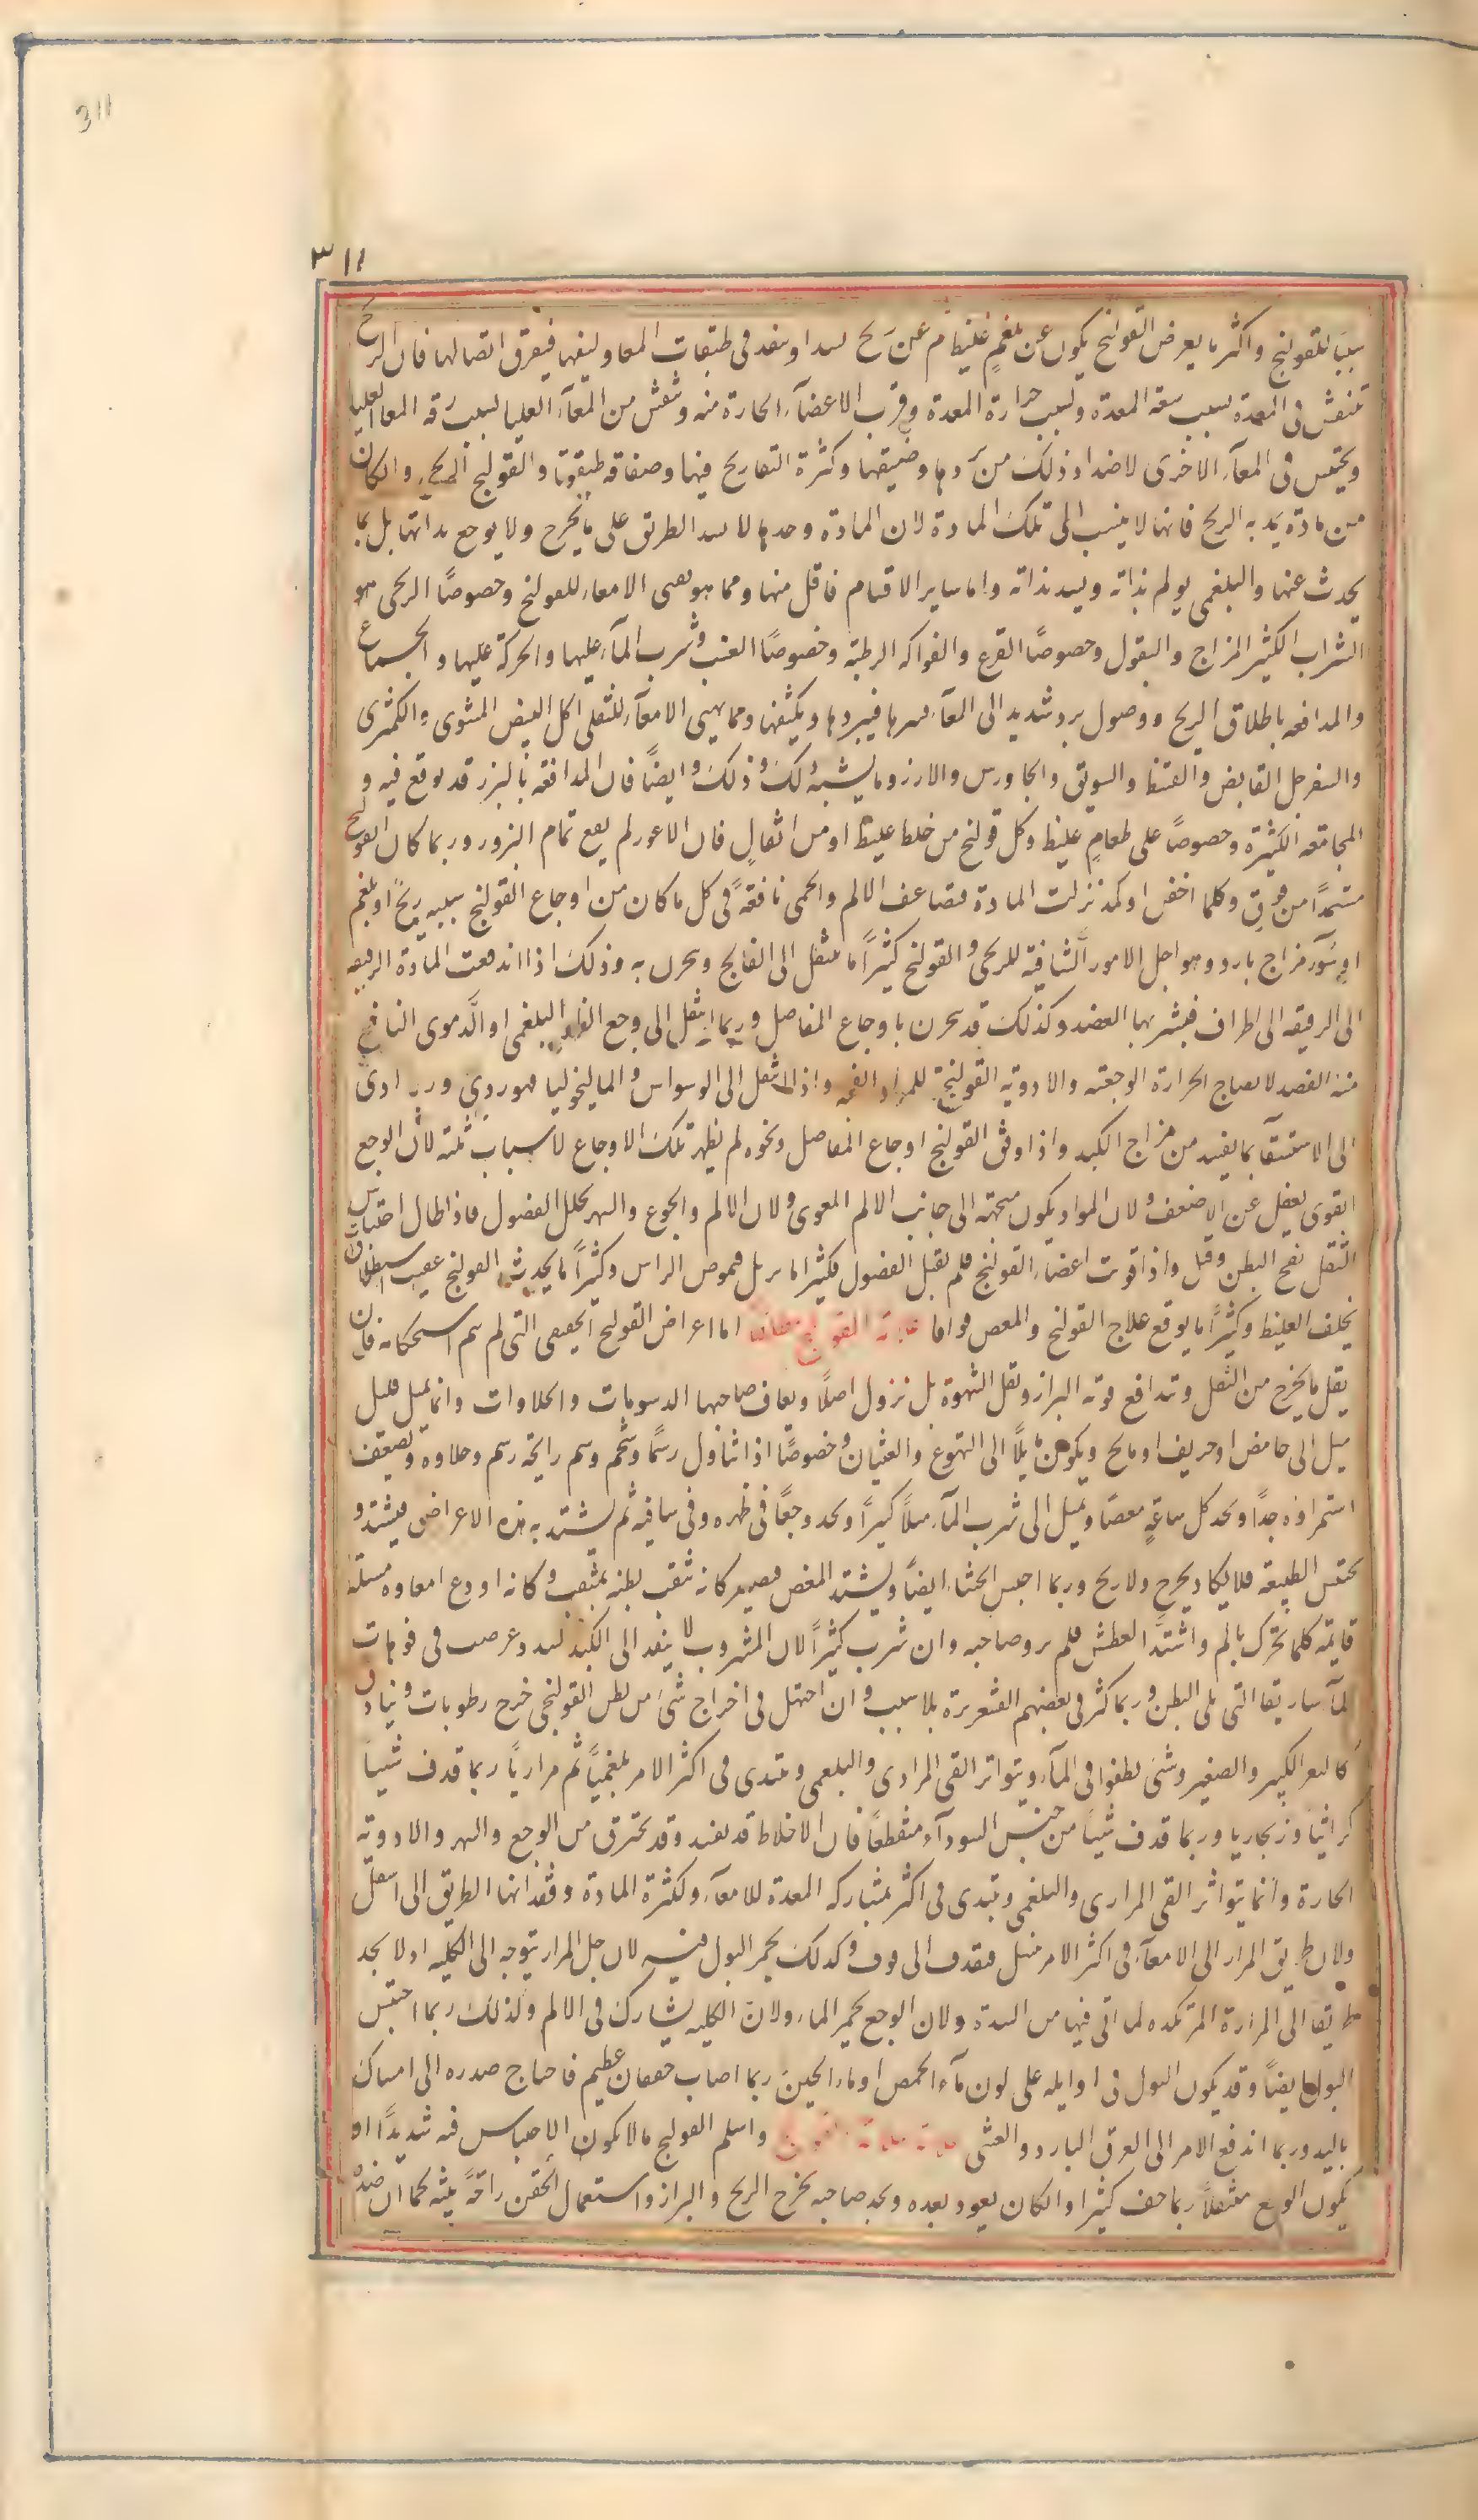 311
٣١١
سببا للقولنج واكثر ما يعرض القولنج يكون عن بلغم غليظ ثم عن ريح يسد او ينفذ في طبقات المعا وليفها فيفرق اتصالها فان الريح
تنفش في المعدة بسبب سعة المعدة وبسبب حرارة المعدة وقرب الاعضآء الحارة منه وتنفش من المعآء العليا بسبب رقه المعا العليا
ويحتبس في المعآء الاخرى لاضداد ذلك من بردها وضيقها وكثرة التعاريج فيها وصفاقة طبقوتا والقولنج الريحي والكان
من مادة يمد به الريح فانها لا ينسب الى تلك المادة لان المادة وحدها لا يسد الطريق على ما يخرج ولا يوجع بذاتها بل بما
يحدث عنها والبلغمي يولم بذاته ويسد بذاته واما ساير الاقسام فاقل منها ومما هو يهيى الامعاء للقولنج وخصوصًا الريحي هو
الشراب الكثير المزاج والبقول وخصوصًا القرع والفواكه الرطبة وخصوصًا العنب وشرب المآء عليها والحركة عليها والجماع
والمدافعه باطلاق الريح ووصول برد شديد الى المعآء فيبردها ويكثفها ومما يهيى الامعآء للثفلي اكل البيض المشوى والكمثرى
والسفرجل القابض والفتيت والسويق والجاورس والارز وما يشبه ذلك وذلك وايضًا فان المدافعه بالبزر قد يوقع فيه و
المجامعه الكثيرة وخصوصًا على طعامٍ غليظ وكل قولنج من خلط غليظ او من اثفالٍ فان الاعور لم يقع تمام البزور وربما كان القولنج
مستمدًا من فوق وكلما اخفن او كمد نزلت المادة فضاعف الالم والحمى نافعةً في كل ما كان من اوجاع القولنج سببه ريحٌ او بلغم
او سوٓء مزاج بارد وهو اجل الامور الشافية للريحي والقولنج كثيرًا ما ينتقل الى الفالج ويبحرن به وذلك اذا اندفعت المادة الرقيقه
الى الرقيقه الى اطراف فيشربها العضد وكذلك قد يبحرن باوجاع المفاصل وربما انتقل الى وجع الظهر البلغمي او الدموى النافع
منه الفصد لانضاج الحرارة الوجعته والادوية القولنجية للمواد الفجه واذا انتقل الى الوسواس والماليخوليا فهو ردي وربما ادى
الى الاستسقآ بما يفسد من مزاج الكبد واذا وفق القولنج اوجاع المفاصل ونحوه لم يظهر تلك الاوجاع لاسباب ثلثه لان الوجع
القوى يغفل عن الاضعف ولان المواد يكون متجهة الى جانب الالم المعوى ولان الالم والجوع والسهر يحلل الفضول فاذا طال احتباس
الثفل نفخ البطن وقتل واذا قويت اعضآء القولنج فلم تقبل الفضول فكثيرا ما الراس وكثيرًا ما يحدث القولنج عقيب استطلاق
يخلف الغليظ وكثيرًا ما يوقع علاج القولنج والمغص اما اعراض القولنج الحقيقى التى لم يتم استحكامه فان
يقل ما يخرج من الثفل وتدافع نوبة البراز وتقل الشهوة بل تزول اصلًا ويعاف صاحبها الدسومات والحلاوات وانما يميل قليل
ميل الى حامض او حريف او مالح ويكون مايلًا الى التهوع والغثيان وخصوصًا اذا تناول دسمًا وشحم وشم رايحة دسم وحلاوه ويضعف
استمراؤه جدًا ويجد كل ساعةٍ مغصًا ويميل الى شرب المآء ميلًا كثيرًا ويجد وجعًا في ظهره وفي ساقيه ثم يشتد به هذه الاعراض فيشتد و
تحتبس الطبيعة فلا يكاد يخرج ولا ريح وربما احتبس الجشاء ايضًا ويشتد المغص فيصير كانه ثقب بطنه بمثقب وكانه اودع امعاوه مسلة
قايمة كلما تحرك يالم واشتد العطش فلم يرو صاحبه وان شرب كثيرًا لان المشروب لا ينفذ الى الكبد لسدد عرضت في فوهات
المآساريقا التى تلى البطن وربما كثر في بعضهم القشعريرة بلا سبب وان احتيل في اخراج شئ من بطن القولنجى خرج رطوبات وبنادق
كالبعر الكبير والصغير وشئ يطفوا في المآء ويتواتر القى المرارى والبلغمي ويبتدى في اكثر الامر بلغميًا ثم مراريًا ربما قذف شيئًا
كراثيا وزنجاريا وربما قذف شيئًا من جنس السودآء متقطعًا فان الاخلاط قد تفسد وقد تحترق من الوجع والسهر والادوية
الحارة وانما يتواتر القى المرارى والبلغمي ويبتدى في اكثر بمشاركه المعدة للامعآء ولكثرة المادة وفقدانها الطريق الى اسفل
ولان طريق المرار الى الامعآء في اكثر الامر ينسل فيقذف الى فوق وكذلك يحمر البول فيه لان جل المرار يتوجه الى الكليه اذ لا يجد
طريقا الى المرارة المتركده لما اتى فيها من السدة ولان الوجع يحمر الماء ولان الكليه يشارك في الالم ولذلك ربما احتبس
البول ايضًا وقد يكون البول في اوايله على لون مآء الحمص او ماء الجبن ربما اصاب خفقان عظيم فاحتاج صدره الى امساك
باليد وربما اندفع الامر الى العرق البارد والغشى واسلم القولنج ما لا يكون الاحتباس فيه شديدًا او
يكون الوجع منتقلًا ربما خف كثيرًا والكان يعود بعده ويجد صاحبه بخرج الريح والبراز واستعمال الحقن راحةً بينه كما ان ضده